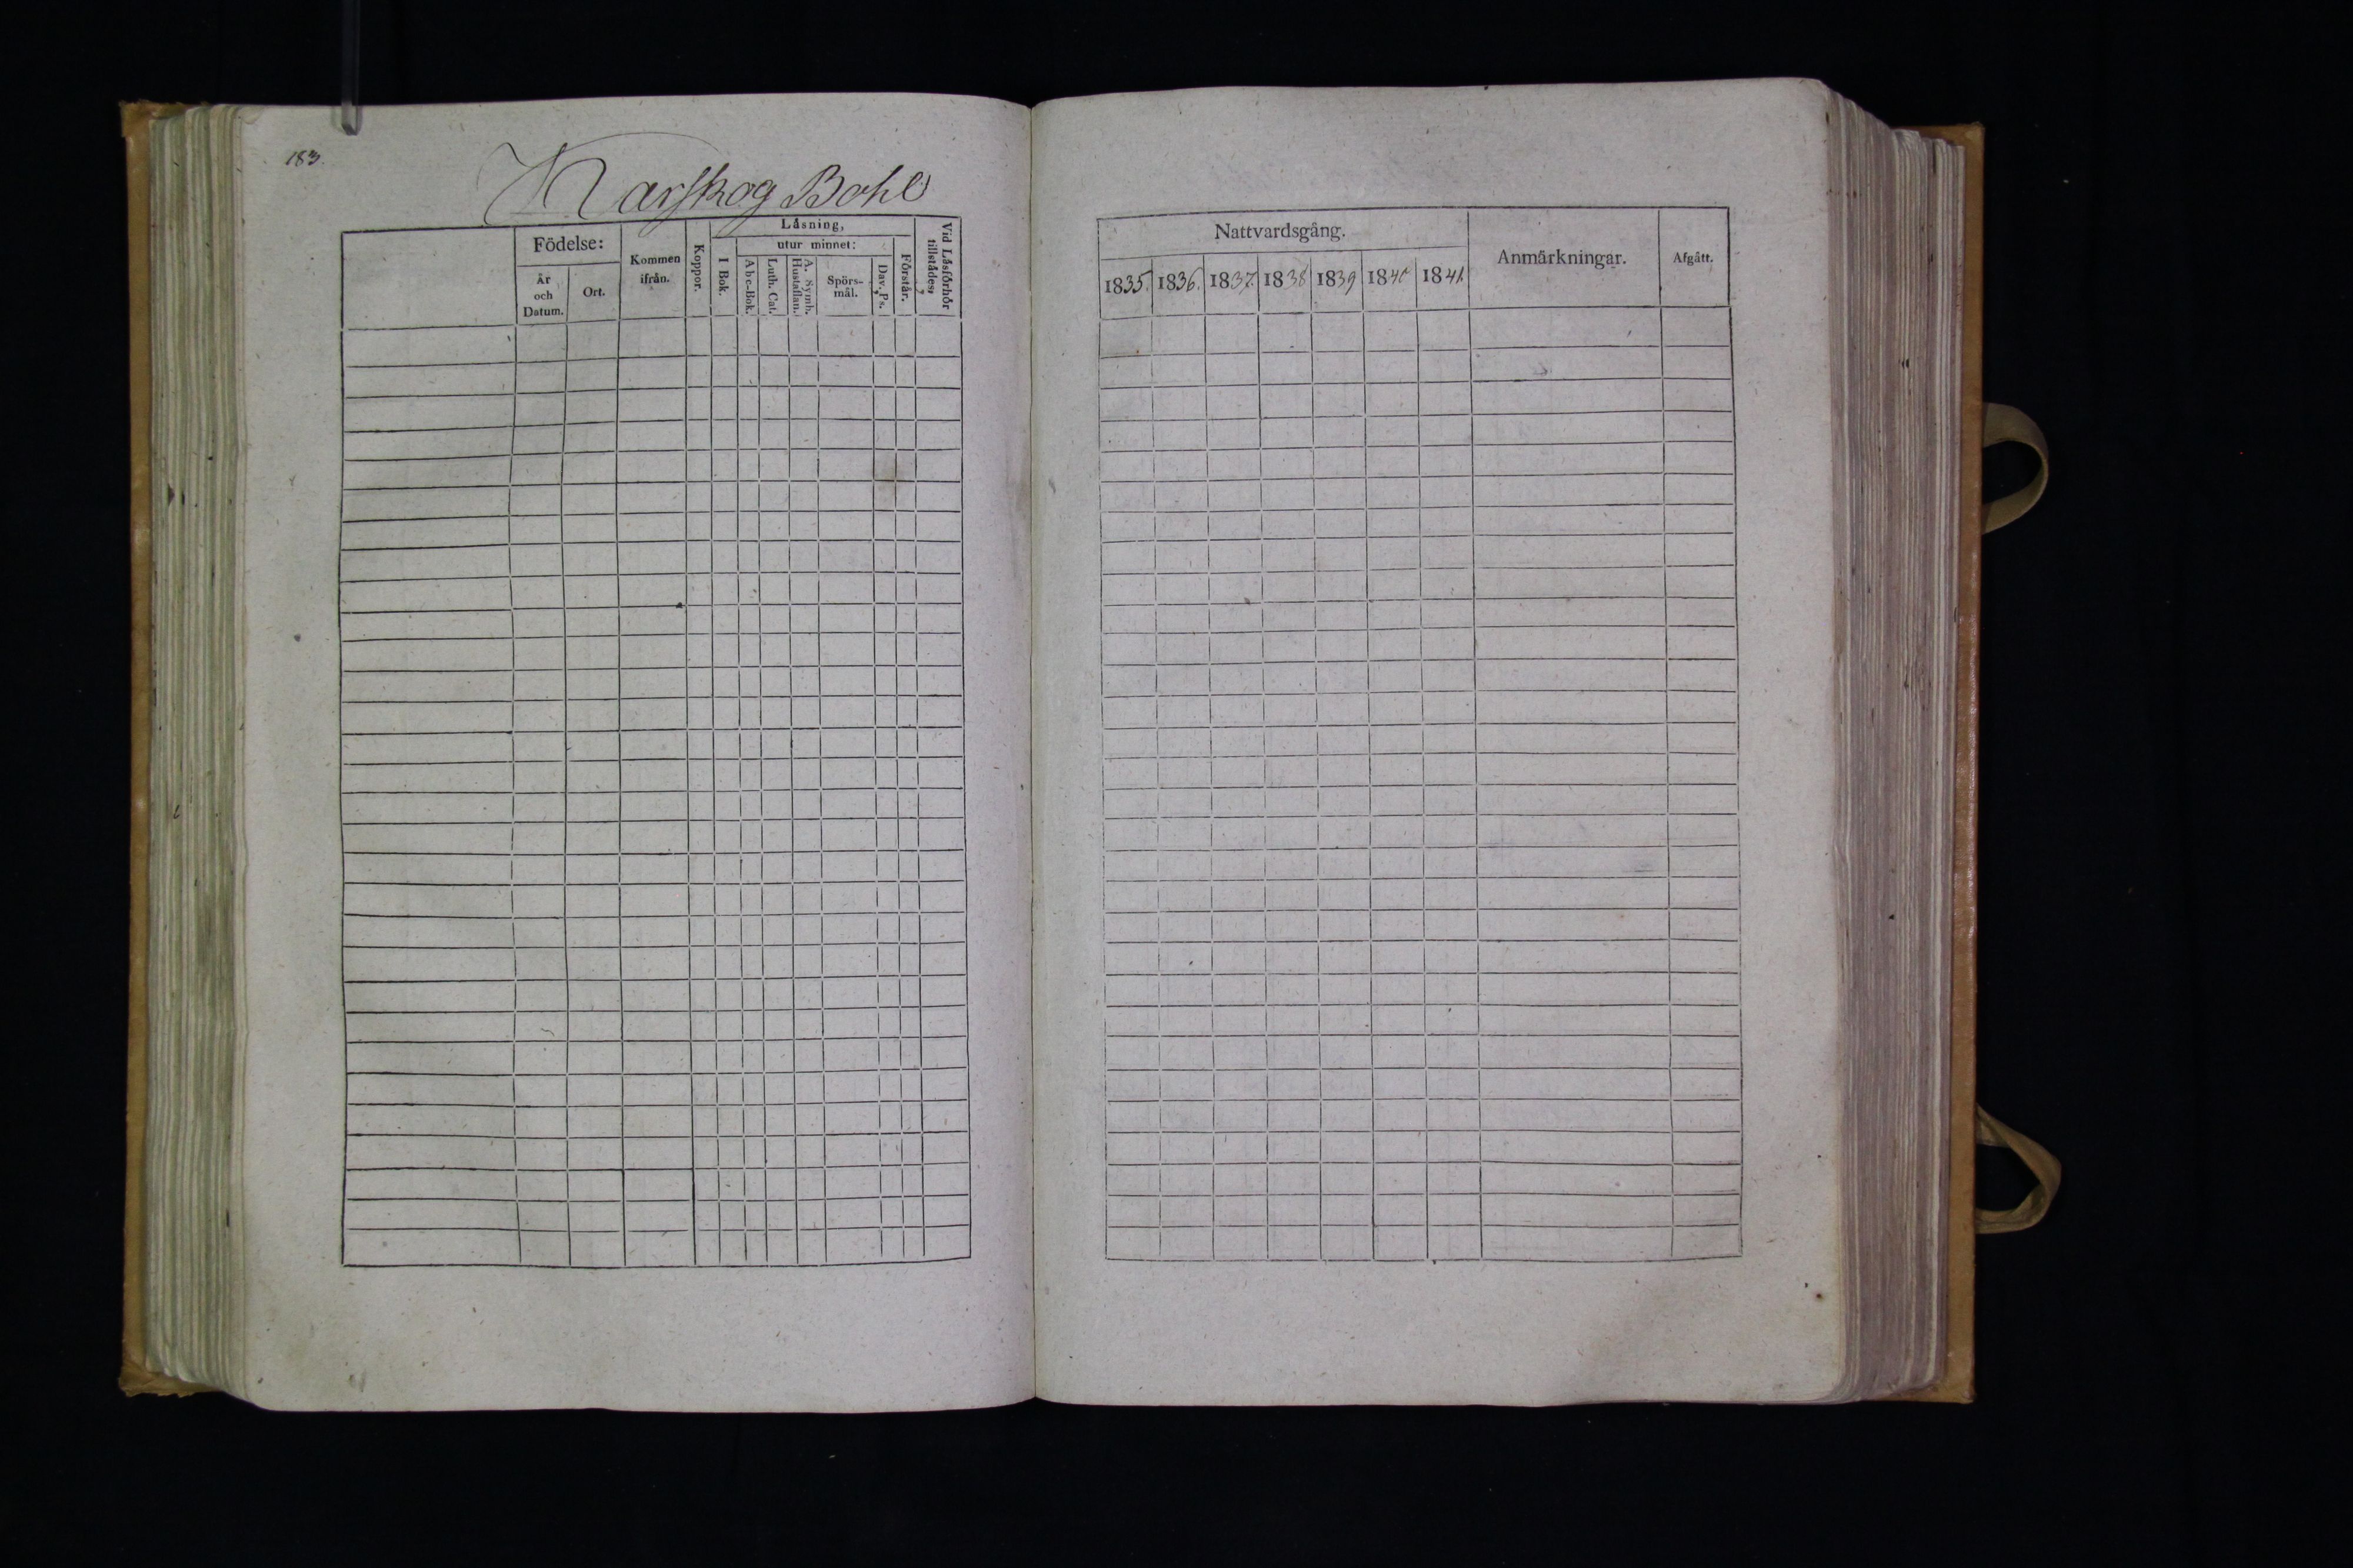 183.
Marskog Bohl
Födelse:
År och Datum.
Ort.
Kommen ifrån.
Koppor.
Läsning,
I Bok.
utur minnet:
Abc-Bok.
Luth. Cat.
A. Symb. Hustaflan.
Spörs-
mål.
Dav. Ps.
Förstår.
Vid Läsförhör tillstädes;
Nattvardsgång.
1835. 1836. 1837. 1838 1839 1840 1841.
Anmärkningar.
Afgått.